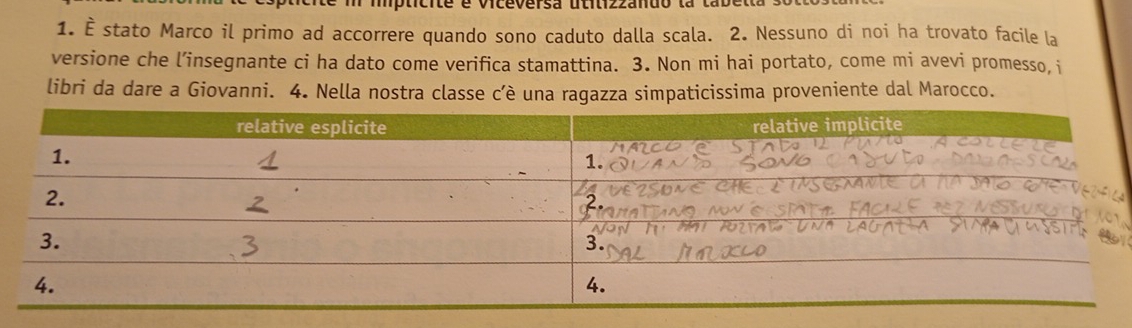 trasforma le esplicite in implicite e viceversa utilizzando la tabella
1. È stato Marco il primo ad accorrere quando sono caduto dalla scala. 2. Nessuno di noi ha trovato facile la
versione che l'insegnante ci ha dato come verifica stamattina. 3. Non mi hai portato, come mi avevi promesso, i
libri da dare a Giovanni. 4. Nella nostra classe c'è una ragazza simpaticissima proveniente dal Marocco.
relative esplicite relative implicite
MARCO È STATO IL A
1. 1 1. QUANDO SONO CADUTO
LA VERSIONE CHE L'INSEGNANTE CI HA DATO COME VERIFICA
2. 2 2. NON È STATA FACILE PER NESSUNO DI NOI
NON MI HAI PORTATO UNA
3. 3 3. DAL MAROCCO
4. 4.